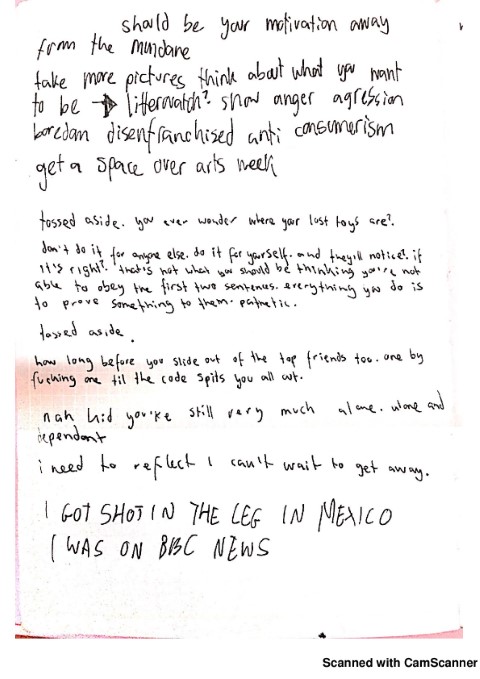 should be your motivation away
from the mundane
take more pictures think about what you want
to be → litterwatch? show anger agression
boredom disenfranchised anti consumerism
get a space over arts week
tossed aside. you ever wonder where your lost toys are?
don't do it for anyone else. do it for yourself. and they'll notice!. if
it's right? that's not what you should be thinking you're not
able to obey the first two sentences. everything you do is
to prove something to them. pathetic.
tossed aside.
how long before you slide out of the top friends too. one by
fucking one til the code spits you all out.
nah kid you're still very much alone. alone and
dependant
i need to reflect I can't wait to get away.
I GOT SHOT IN THE LEG IN MEXICO
I WAS ON BBC NEWS
Scanned with CamScanner